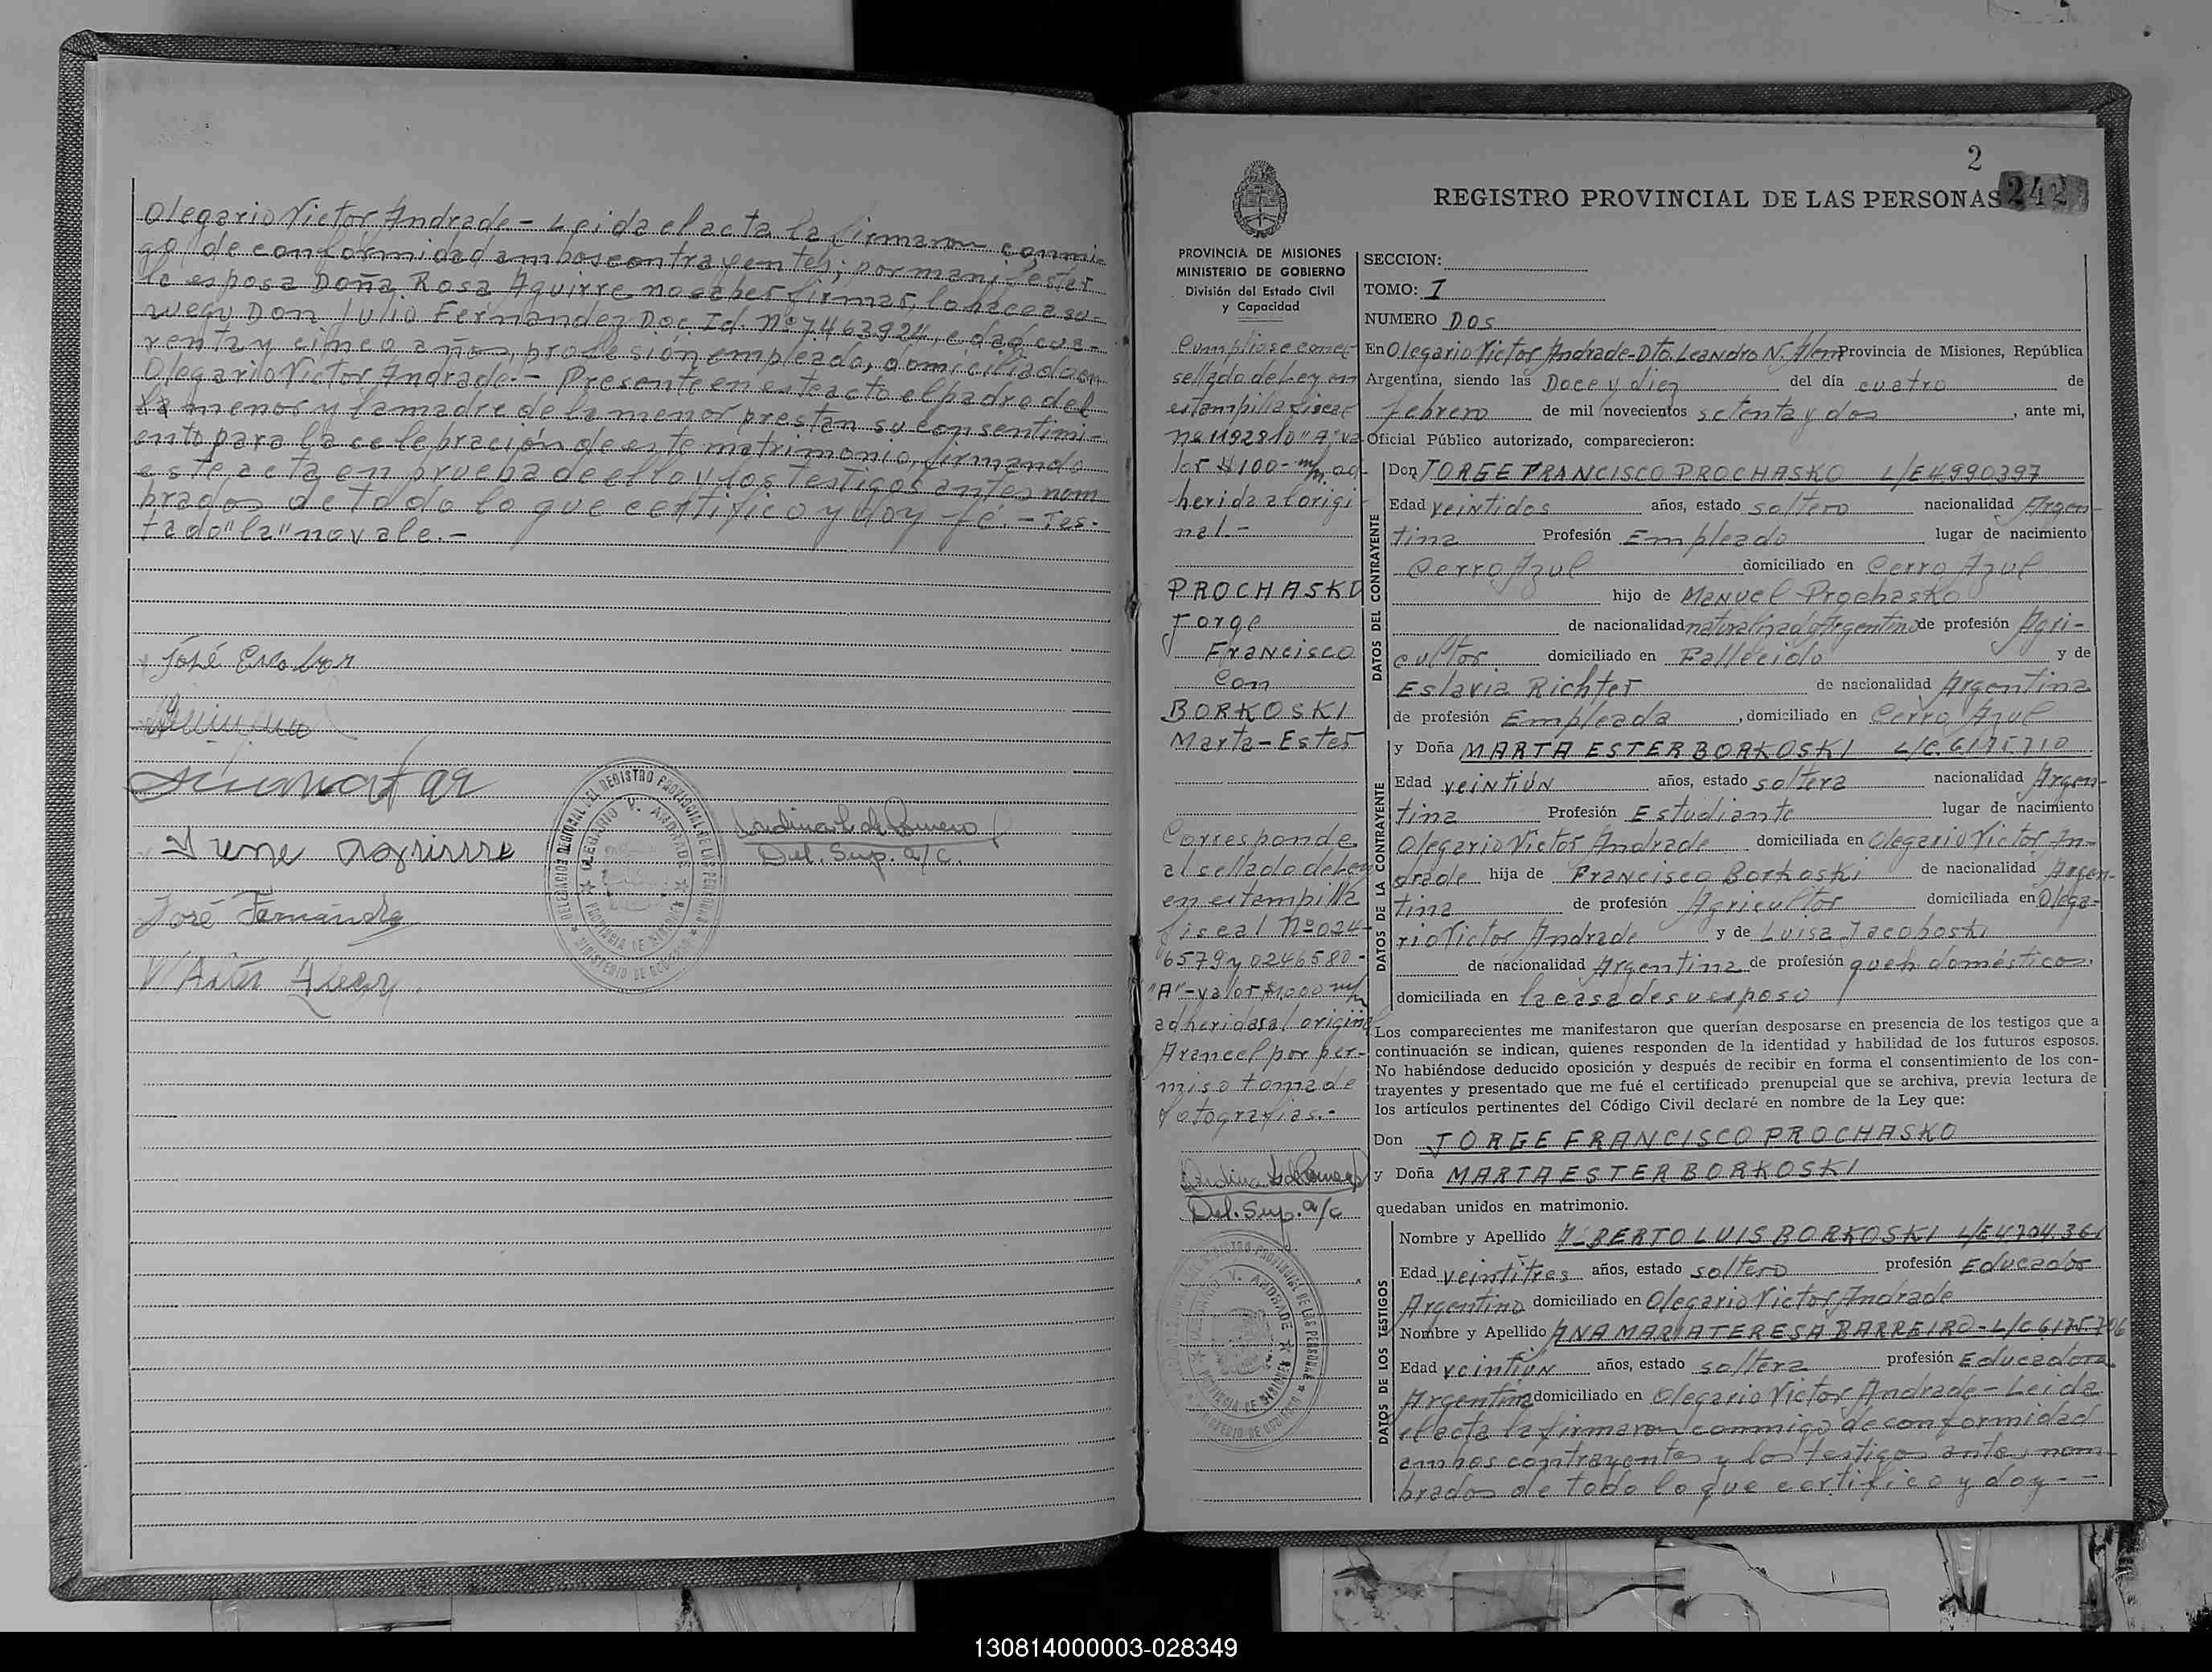 Olegario Victor Andrade - Leida el acta la firmaron conmi-
go de conformidad ambos contrayentes; por manifestar
la esposa Doña Rosa Aguirre no saber firmar, lo hace a su
ruego Don Julio Fernandez Doc. Id. Nº 7.463.924, edad cua-
renta y cinco años, profesión empleado, domiciliado en
Olegario Victor Andrade.- Presente en este acto el padre del
la menor y la madre de la menor prestan su consentimi-
ento para la celebración de este matrimonio, firmando
este acta en prueba de ello y los testigos antes nom
brados de todo lo que certifico y doy fé.- Tes-
tado "la" no vale.-
José Escobar
Irene Aguirre
José Fernández
Del. Sup. a/c.
DELEGACION REGIONAL DEL REGISTRO PROVINCIAL DE LAS PERSONAS
OLEGARIO V. ANDRADE
PROVINCIA DE MISIONES
MINISTERIO DE GOBIERNO
2
242
REGISTRO PROVINCIAL DE LAS PERSONAS
PROVINCIA DE MISIONES
MINISTERIO DE GOBIERNO
División del Estado Civil
y Capacidad
Cumpliose con el
sellado de Ley en
estampilla fiscal
nº 1192810 "A" va
lor $ 100- m/n. ad-
herida al origi
nal.-
PROCHASKO
Jorge
Francisco
Con
BORKOSKI
Marta-Ester
Corresponde
al sellado de Ley
en estampilla
fiscal Nº 024-
6579 y 0246580-
"A"-valor $1.000 m/n
adheridas al original
Arancel por per-
miso toma de
fotografias.-
Del. Sup. a/c
SECCION:
TOMO: I
NUMERO DOS
En Olegario Victor Andrade-Dto. Leandro N. Alem Provincia de Misiones, República
Argentina, siendo las Doce y diez del día cuatro de
febrero de mil novecientos setenta y dos, ante mi,
Oficial Público autorizado, comparecieron:
DATOS DEL CONTRAYENTE
Don JORGE FRANCISCO PROCHASKO L/E 4990397
Edad veintidos años, estado soltero nacionalidad Argen-
tina Profesión Empleado lugar de nacimiento
Cerro Azul domiciliado en Cerro Azul
hijo de Manuel Prochasko
de nacionalidad naturalizado Argentino de profesión Agri-
cultor domiciliado en Fallecido y de
Eslavia Richter de nacionalidad Argentina
de profesión Empleada, domiciliado en Cerro Azul
DATOS DE LA CONTRAYENTE
y Doña MARTA ESTER BORKOSKI L/C. 6175710
Edad veintiún años, estado soltera nacionalidad Argen-
tina Profesión Estudiante lugar de nacimiento
Olegario Victor Andrade domiciliada en Olegario Victor An-
drade hija de Francisco Borkoski de nacionalidad Argen-
tina de profesión Agricultor domiciliada en Olega-
rio Victor Andrade y de Luisa Jacoboski
de nacionalidad Argentina de profesión queh. domésticos.
domiciliada en la casa de su esposo
Los comparecientes me manifestaron que querían desposarse en presencia de los testigos que a
continuación se indican, quienes responden de la identidad y habilidad de los futuros esposos.
No habiéndose deducido oposición y después de recibir en forma el consentimiento de los con-
trayentes y presentado que me fué el certificado prenupcial que se archiva, previa lectura de
los artículos pertinentes del Código Civil declaré en nombre de la Ley que:
Don JORGE FRANCISCO PROCHASKO
y Doña MARTA ESTER BORKOSKI
quedaban unidos en matrimonio.
DATOS DE LOS TESTIGOS
Nombre y Apellido ALBERTO LUIS BORKOSKI L/E 4.704.361
Edad veintitres años, estado soltero profesión Educador
Argentino domiciliado en Olegario Victor Andrade
Nombre y Apellido ANA MARIA TERESA BARREIRO - L/C 6.175.706
Edad veintiún años, estado soltera profesión Educadora
Argentina domiciliado en Olegario Victor Andrade - Leida
el acta la firmaron conmigo de conformidad
ambos contrayentes y los testigos antes nom
brados de todo lo que certifico y doy - -
130814000003-028349